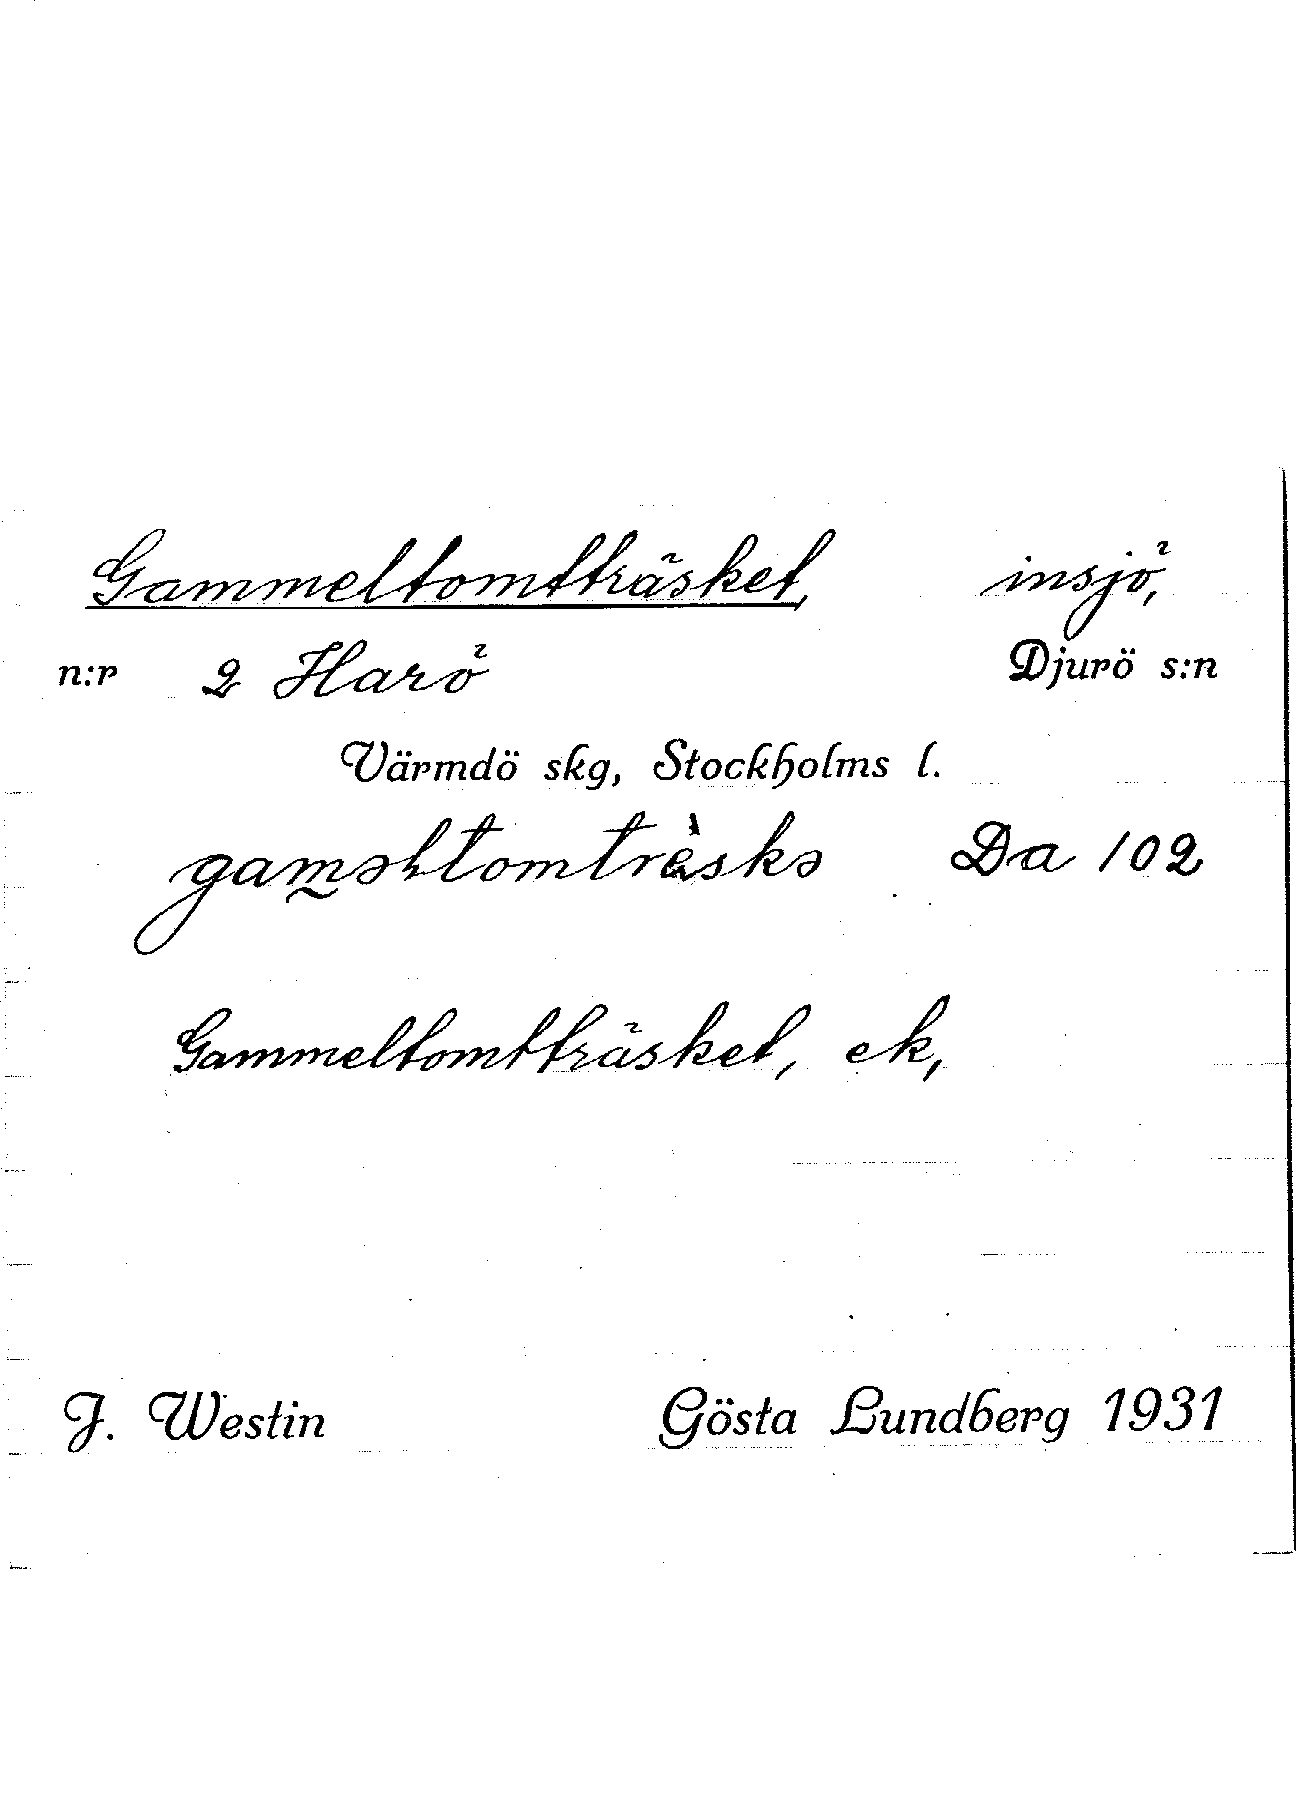 Gammeltomtträsket, insjö,
n:r 2 Harö Djurö s:n
Värmdö skg, Stockholms l.
Da 102
Gammeltomtträsket, ek,
J. Westin Gösta Lundberg 1931